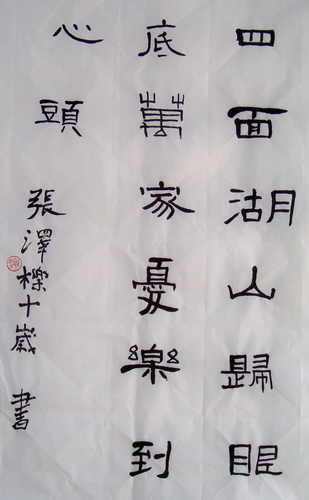 四面湖山歸眼
底萬家憂樂到
心頭
張澤櫟十歲書